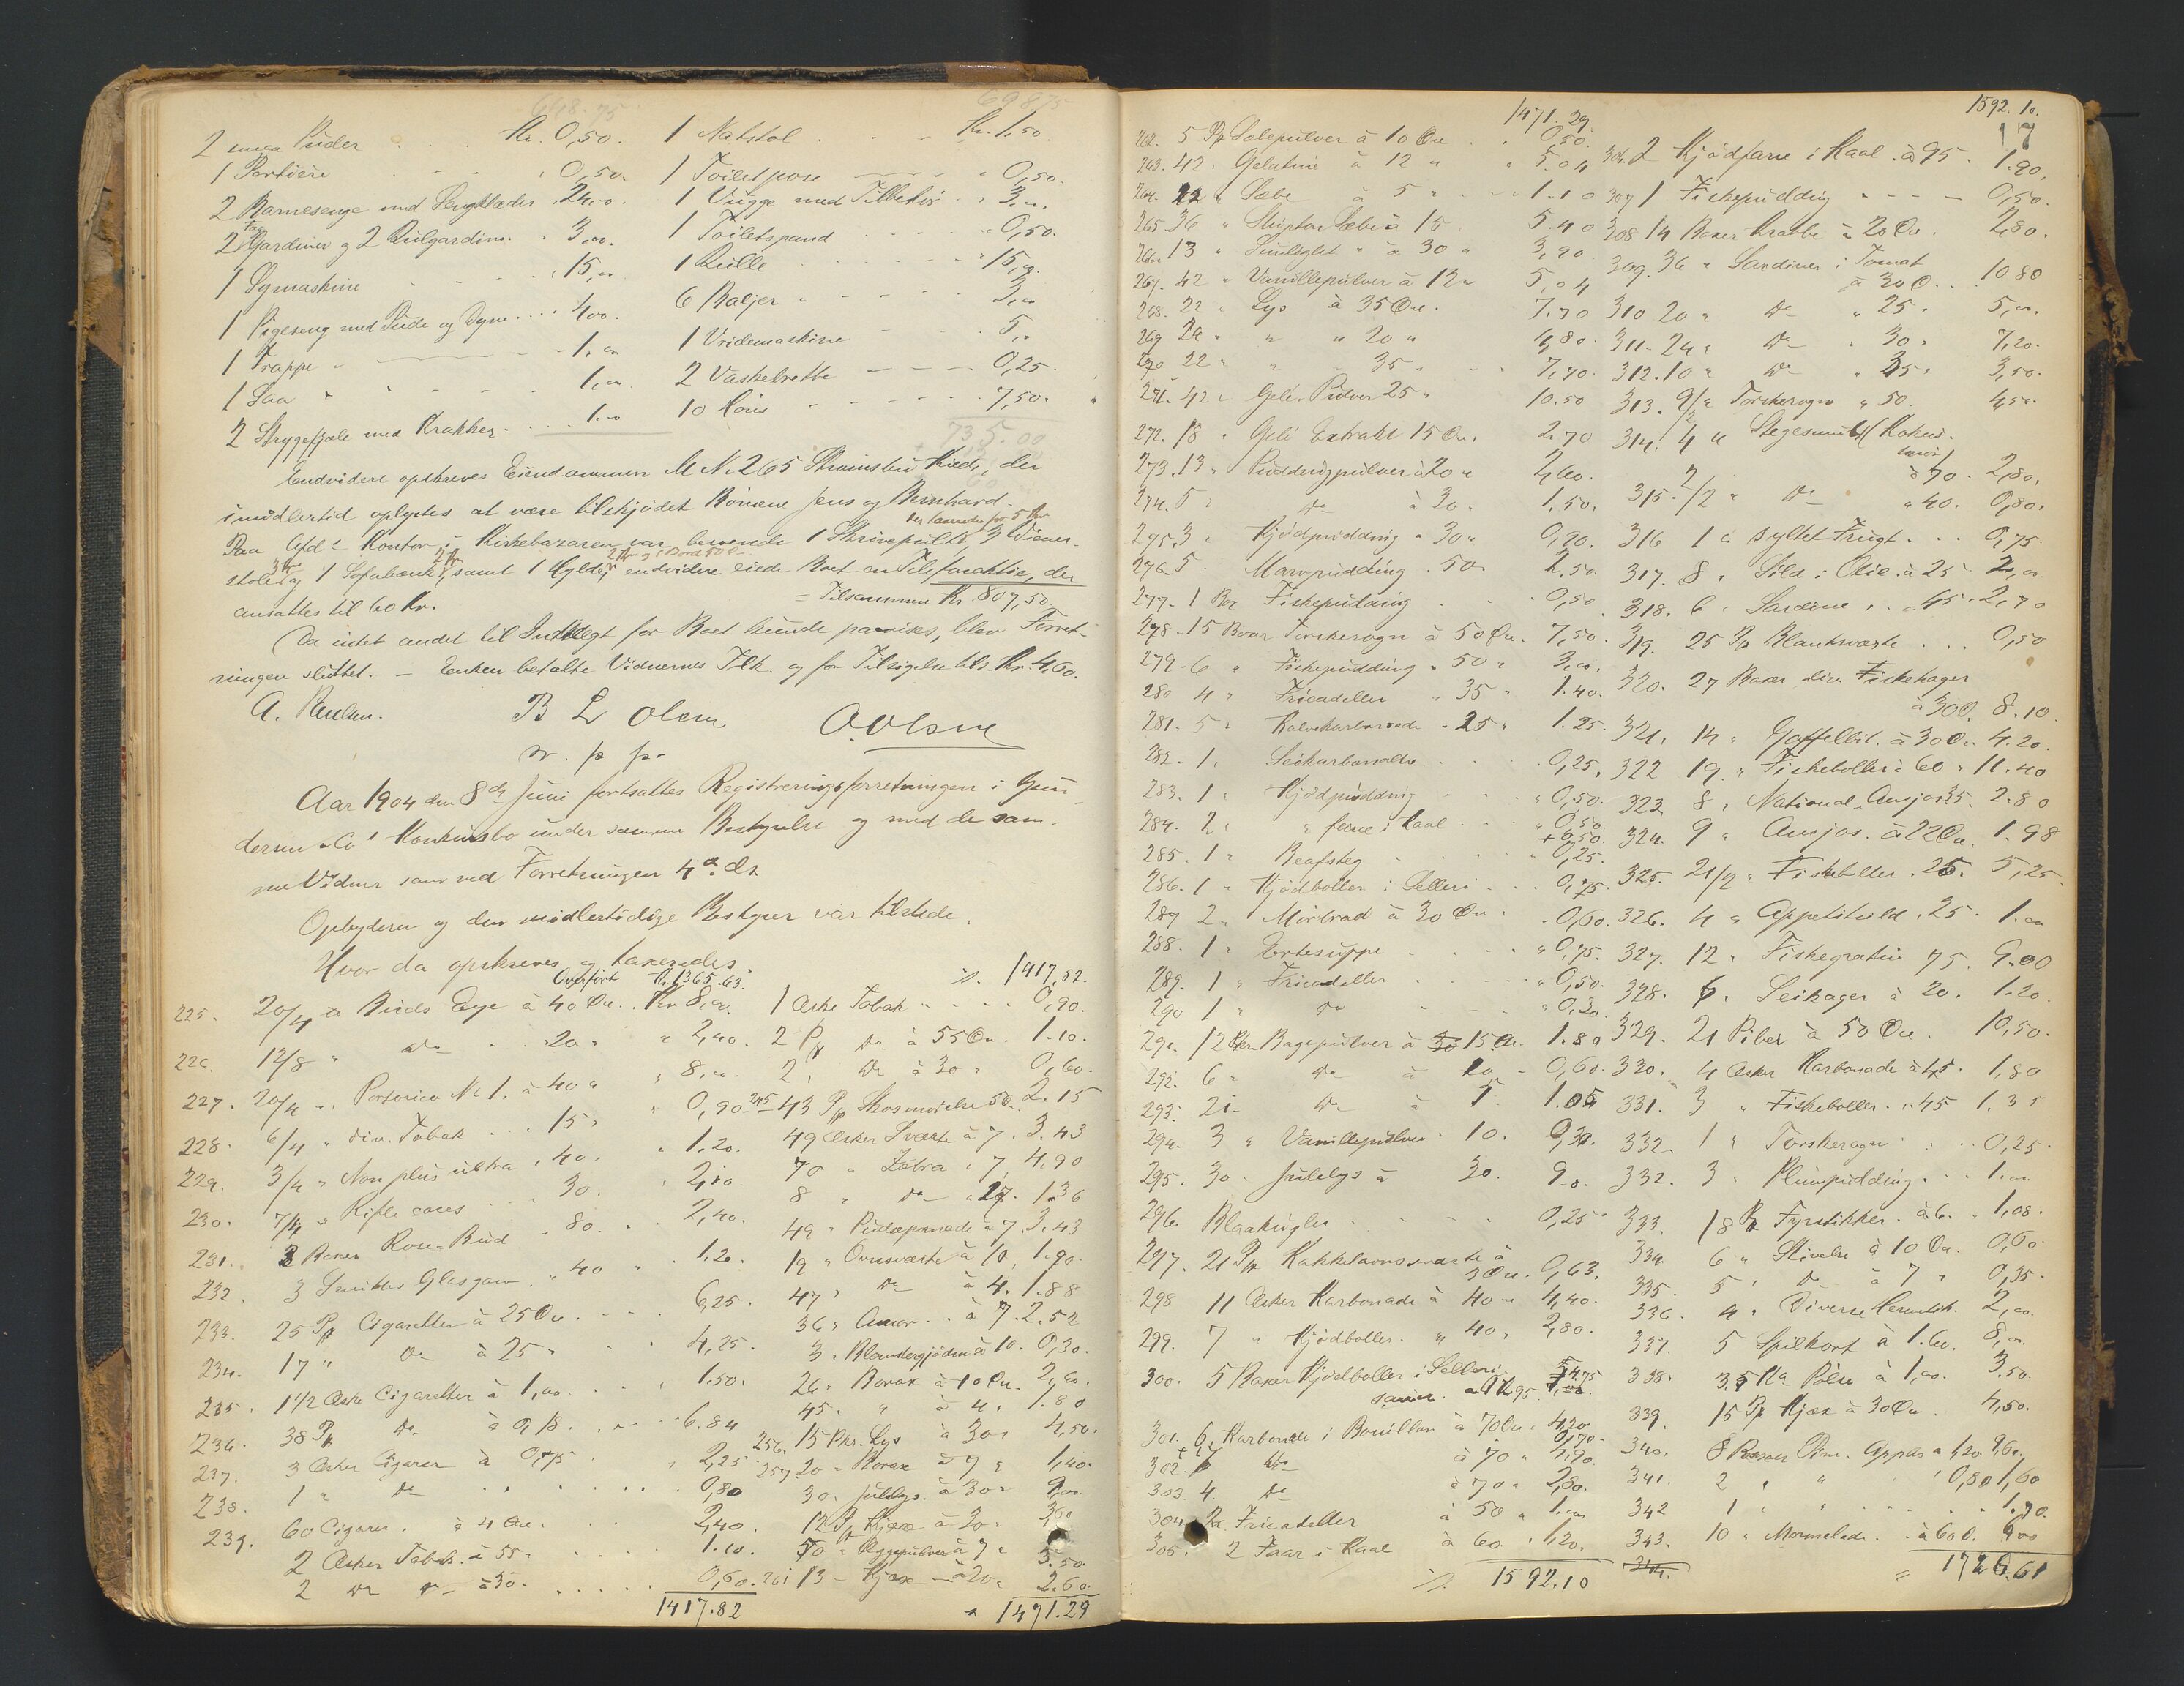 668.75
69875
2 smaa Puder Kr. 0,50.
1 Portière 0,50.
2 Barnesenge med Sengklæder 24,00
2 Fag Gardiner og 2 Rulgardiner 3,00.
1 Symaskine 15,00
1 Pigeseng med Pude og Dyne 4,00.
1 Trappe 1,00
1 Saa 1,00
2 Strygefjæle med Krakker 1,00
1 Natstol Kr. 1,50.
1 Toiletpose 0,50.
1 Vugge med Tilbehör 3,00.
1 Toiletspand 0,50.
1 Rulle 15,00.
6 Baljer 3,00
1 Vridemaskine 5,00
2 Vaskebrette 0,25.
10 Höns 7,50.
735.00
Endvidere opskreves Eiendommen M. N. 265 Strömsbu der
imidlertid oplystes at være tilskjödet Börnene Jens og Bernhard.
der laanedes for 5 Kr
Paa Afd.s Kontor i Kirkebazaren var beroende 1 Skrivepult, 3 Wiener-
3 Kr 2 Kr 2 Kr og 1 Bord 50 Ö.
stole og 1 Sofabænk, samt 1 Hylde, endvidere eiede Boet en Telefonaktie, der
ansattes til 60 Kr. = Tilsammen Kr. 807,50.
Da intet andet til Indtægt for Boet kunde paavises, blev Forret-
ningen sluttet. — Enken betalte Vidnernes Tilk. og for Tilsigelse tils. Kr. 4,60.
A. Paulsen. B L Olsen O. Olsen
m. p. p.
Aar 1904 den 8de Juni fortsattes Registreringsforretningen i Gun-
dersen & Co's Konkursbo under samme Bestyrelse og med de sam-
me Vidner som ved Forretningen 4de ds.
Opbyderen og den midlertidige Bestyrer var tilstede.
Hvor da opskreves og taxeredes
Overfört Kr. 1365.63.
225. 20/4 Buds Eye à 40 Öre. Kr 8,00.
226. 12/8 " Do " 20 " 2,40.
227. 20/4 " Portorico No 1. à 40 " 8,00.
228. 6/4 " div. Tobak 15 " 0,90
229. 3/4 " Non plus ultra " 40. 1.20.
230. 7/4 " Rifle cares 30. 2,10.
231. 3 Baxer Rose-Bud 80. 2,40.
232. 3 Smiths Glasgow " 40 1.20.
233. 25 Pk Cigaretter à 25 Öre. 6,25.
234. 17 " Do à 25 " 4,25.
235. 1 1/2 Æske Cigaretter à 1,00. 1.50.
236. 38 Pk Do à 0,18. 6.84
237. 3 Æsker Cigarer à 0,75 2,25
238. 1 " Do 0,80
239. 60 Cigarer. à 4 Öre. 2,40.
2 Æsker Tobak à 55 " 1.10.
2 Do à 30. 0,60.
1417.82
%. 1417.82.
1 Æske Tobak 0,90.
2 Pk Do à 55 Öre. 1.10.
2 " Do à 30 " 0,60.
245 43 Pk Skosmörelse 5 Ö. 2.15
49 Æsker Sværte à 7. 3.43
70 " Zebra " 7, 4.90
8 " Do " 17. 1.36
49 " Pudsepomade " 7. 3.43
19 " Ovnsværte à 10, 1.90.
47 " Do à 4. 1.88
36 " Amor à 7. 2.52
3 " Blomstergjödsel à 10. 0,30.
26 " Borax à 10 Öre. 2,60.
45 " " à 4. 1.80
256. 15 Pkr. Lys à 30 " 4,50.
257 20 " Borax à 7 " 1,40.
30 " Jullys. à 30 " 9,00.
12 Pk Kjæx à 30 " 3,60
50 " Æggepulver à 7 " 3.50.
261 13 — Kjæx — à 20 " 2.60.
1471.29
1471.29
262. 5 Pk Sæbepulver à 10 Öre 0,50.
263. 42 " Gelatine à 12 " 5.04
264. 22 " Sæbe à 5 " 1.10
265 36 " Sæbe à 15 5.40
266. 13 " Sunlight " à 30 " 3,90
267. 42 " Vanillepulver à 12 " 5,04
268. 22 " Lys à 35 Öre. 7.70
269 24 " " " 20 " 4,80.
270 22 " " 35 " 7,70.
271. 42 " Gelé-Pulver 25 " 10.50
272. 18 " Gelé Extrakt 15 Öre. 2,70
273. 13 " Puddingpulver à 20 " 2,60.
274. 5 " Do à 30 " 1,50.
275. 3 " Kjödpudding " 30 " 0,90.
276. 5 " Marvpudding " 50 " 2,50.
277. 1 Box Fiskepudding 0,50
278. 15 Boxer Torskerogn à 50 Öre. 7,50.
279. 6 " Fiskepudding " 50 " 3,00.
280 4 " Fricadeller " 35 " 1.40.
281. 5 " Kalvekarbonade " 25 " 1.25.
282. 1 " Seikarbonade 0,25.
283. 1 " Kjödpudding 0,50.
284. 2 " " farse i Kaal 0,50. + 0,50.
285. 1 " Beafsteg 0,25.
286. 1 " Kjödboller i Selleri 0,75.
287 2 " Mörbrad à 30 Öre 0,60.
288. 1 " Ertesuppe 0,75.
289. 1 " Fricadeller 0,50.
290 1 " Do 0,30.
291. 12 Pkr Bagepulver à 15 Öre. 1.80
292. 6 " Do à 10 0,60.
293. 21 Do à 5 1.05
294. 3 " Vanillepulver 10. 0,30.
295. 30 " Julelys à 30. 9.0.
296. Blaakugler 0,25
297. 21 Pk Kakkelovnssværte à 3 Öre. 0,63.
298 11 Æsker Karbonade à 40 " 4,40.
299. 7 " Kjödboller " 40 " 2,80.
300. 5 Boxer Kjödboller i Selleri 4.75
301. 6 Karbonade i Bouillon à 70 Öre. 4,20
302. Do à 70 " 4,90.
303. 4. Do à 70 " 2,80.
304. 2 Fricadeller à 50 " 1,00
305. 2 Faar i Kaal à 60 1,20.
%. 1592.10
1592.10.
17
306. 2 Kjödfarse i Kaal à 95. 1.90.
307 1 Fiskepudding 0,50.
308 14 Boxer Krabbe à 20 Öre. 2,80.
309. 36 " Sardiner i Tomat à 30 Ö. 10 80
310 20 " Do " 25 " 5,00.
311. 24 " Do " 30 " 7,20.
312. 10 " Do " 35 " 3,50.
313. 9/2 " Torskerogn " 50. 4,50.
314. 4 " Stegesmult (Kokussmör) à 70. 2,80.
315. 2/2 " Do " 40. 0,80.
316 1 " syltet Frugt 0,75
317. 8 " Sild i Olie à 25 2,00
318. 6 " Sardine " 45. 2,70
319. 25 Pk Blanksværte 0,50
320. 27 Boxer div. Fiskekager à 30 Ö. 8.10
321. 14 " Gaffelbit. à 30 Ö. 4.20.
322 19 " Fiskeboller à 60 " 11.40
323 8 " National Ansjos 35. 2.80
324. 9 " Ansjos. à 22 Öre. 1.98
325. 21/2 " Fiskeboller " 25. 5,25
326. 4 " Appetitsild " 25. 1.00
327. 12 " Fiskegratin 75. 9.00
328. 6. Seikager à 20. 1.20.
329. 21 Piber à 50 Öre. 10,50.
330. 4 Æsker Karbonade à 45. 1,80
331. 3 " Fiskeboller " 45 1.35
332. 1 " Torskerogn 0,25.
332. 3 " Plumpudding 1.00
333. 18 Pk Fyrstikker. à 6. 1,08.
334 6 " Stivelse à 10 Öre. 0,60
335. 5 " Do à 7 " 0,35.
336. 4 " Diverse Hermetik. 2,00.
337. 5 Spilkort à 1.60. 8,00.
338. 3.5 Ka Pölse à 1,00. 3.50.
339. 15 Pk Kjæx à 30 Öre. 4,50.
340. 8 Boxer à 1,20 9,60.
341. 2 " " 0,80 1,60
342 1 " " 1.90.
343. 10 " Marmelade à 60 Ö.
344.
= 1726.61